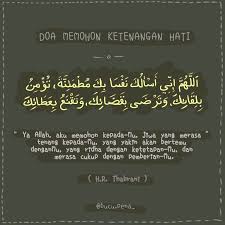 DOA MEMOHON KETENANGAN HATI
اَللّٰهُمَّ اِنِّي أَسْأَلُكَ نَفْسًا بِكَ مُطْمَئِنَّةً، تُؤْمِنُ
بِلِقَائِكَ، وَتَرْضَى بِقَضَائِكَ، وَتَقْنَعُ بِعَطَائِكَ
" Ya Allah, aku memohon kepada-Mu, Jiwa yang merasa
tenang kepada-Mu, yang yakin akan bertemu
denganMu, yang ridha dengan ketetapan-Mu, dan
merasa cukup dengan pemberian-Mu.
( H.R. Thabrani )